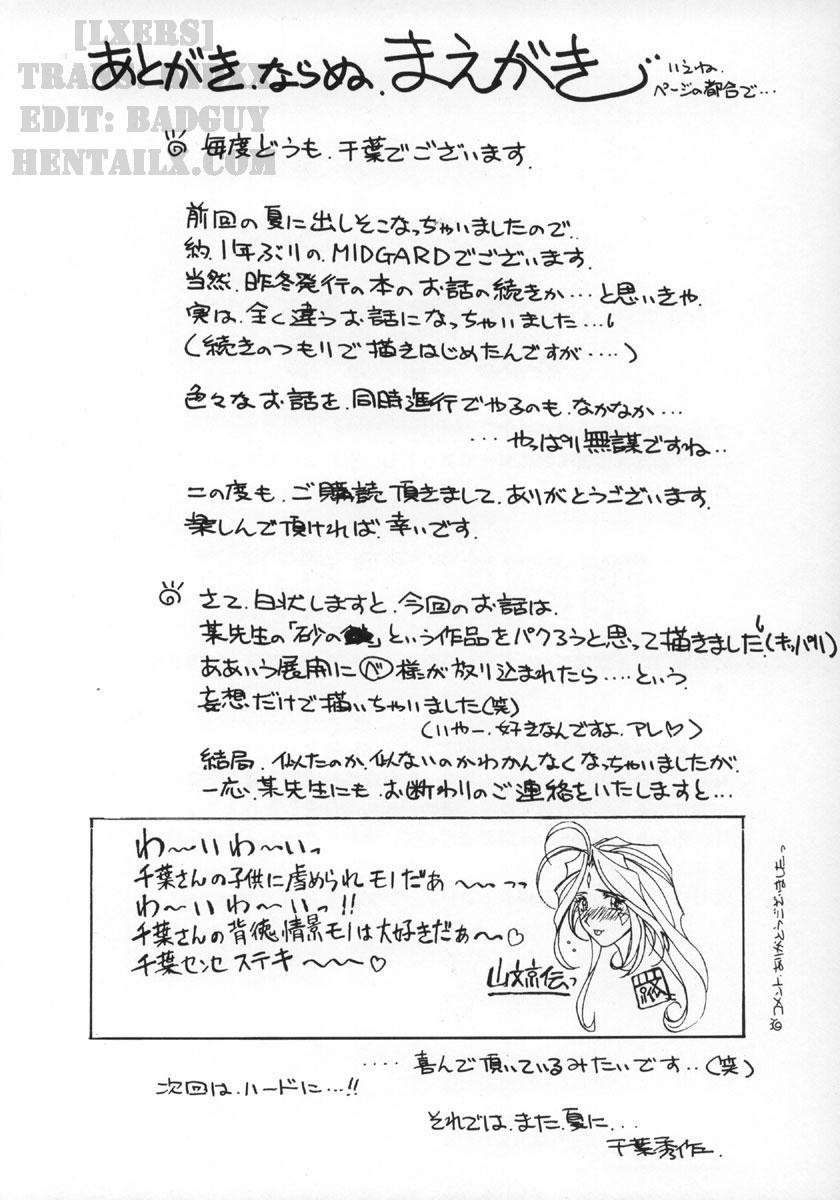 [LXERS]
EDIT: BADGUY
HENTAILX.COM
あとがき.ならぬ.まえがき
いえね.
ページの都合で…
毎度どうも.千葉でございます.
前回の夏に出しそこなっちゃいましたので..
約.1年ぶりの.MIDGARDでございます.
当然.昨冬発行の本のお話の続きか…と思いきや.
実は.全く違うお話になっちゃいました…
(続きのつもりで描きはじめたんですが‥‥)
色々なお話を.同時進行でやるのも.なかなか…
…やっぱり無謀ですね..
この度も.ご購読頂きまして.ありがとうございます.
楽しんで頂ければ.幸いです.
さて.白状しますと.今回のお話は.
某先生の「砂の」という作品をパクろうと思って描きました.(キッパリ)
ああいう展開にベ様が放り込まれたら‥‥という.
妄想だけで描いちゃいました(笑)
(いやー.好きなんですよ.アレ♡)
結局.似たのか.似ないのかわかんなくなっちゃいましたが.
一応.某先生にも.お断わりのご連絡をいたしますと…
わ〜いわ〜いっ
千葉さんの子供に虐められモノだぁ〜〜っっ
わ〜いわ〜いっ!!
千葉さんの背徳情景モノは大好きだぁ〜♡
千葉センセステキ〜〜〜♡
山文京伝っ
コメントありがとうございましたっ
‥‥喜んで頂いているみたいです..(笑)
次回は.ハードに…!!
それでは.また.夏に...
千葉秀作.